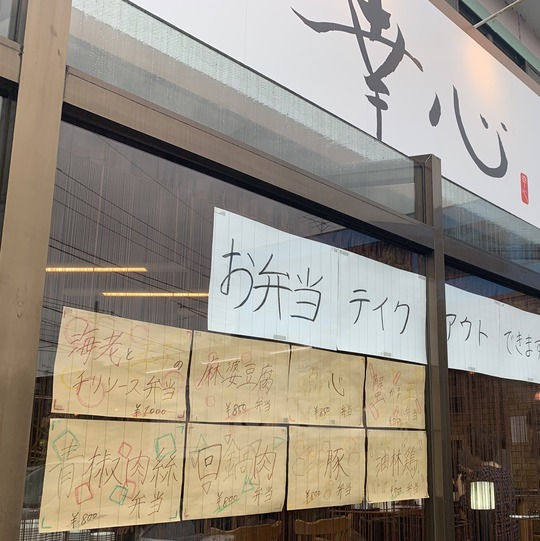 幸心
お弁当 テイクアウト できます
海老と
の
チリソース弁当
¥1000
麻婆豆腐
¥850 弁当
心
¥850 弁当
青椒肉絲
弁当
¥800
回鍋肉
¥800 弁当
豚
弁当
油林鶏